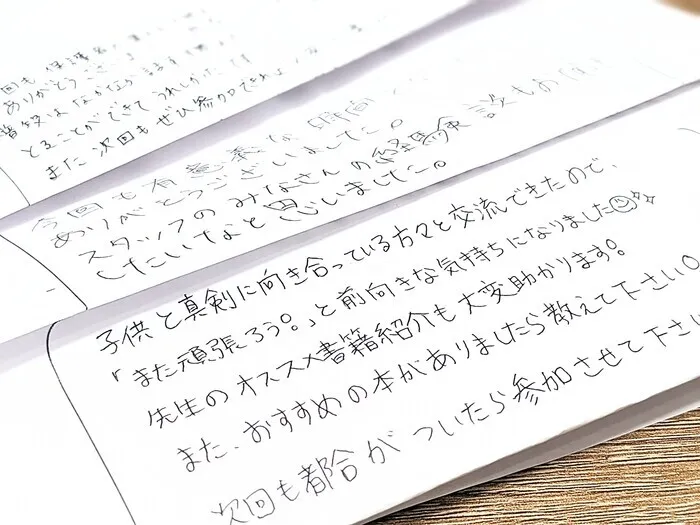 ありがとうござい
とることができてうれしかった
また次回もぜひ参加できれば
今回も有意義な時間
ありがとうございました。
スタッフのみなさんの経験談もお
したいなと思いました。
子供と真剣に向き合っている方々と交流できたので、
「また頑張ろう。」と前向きな気持ちになりました
先生のオススメ書籍紹介も大変助かります。
また、おすすめの本がありましたら教えて下さい。
次回も都合がついたら参加させて下さい